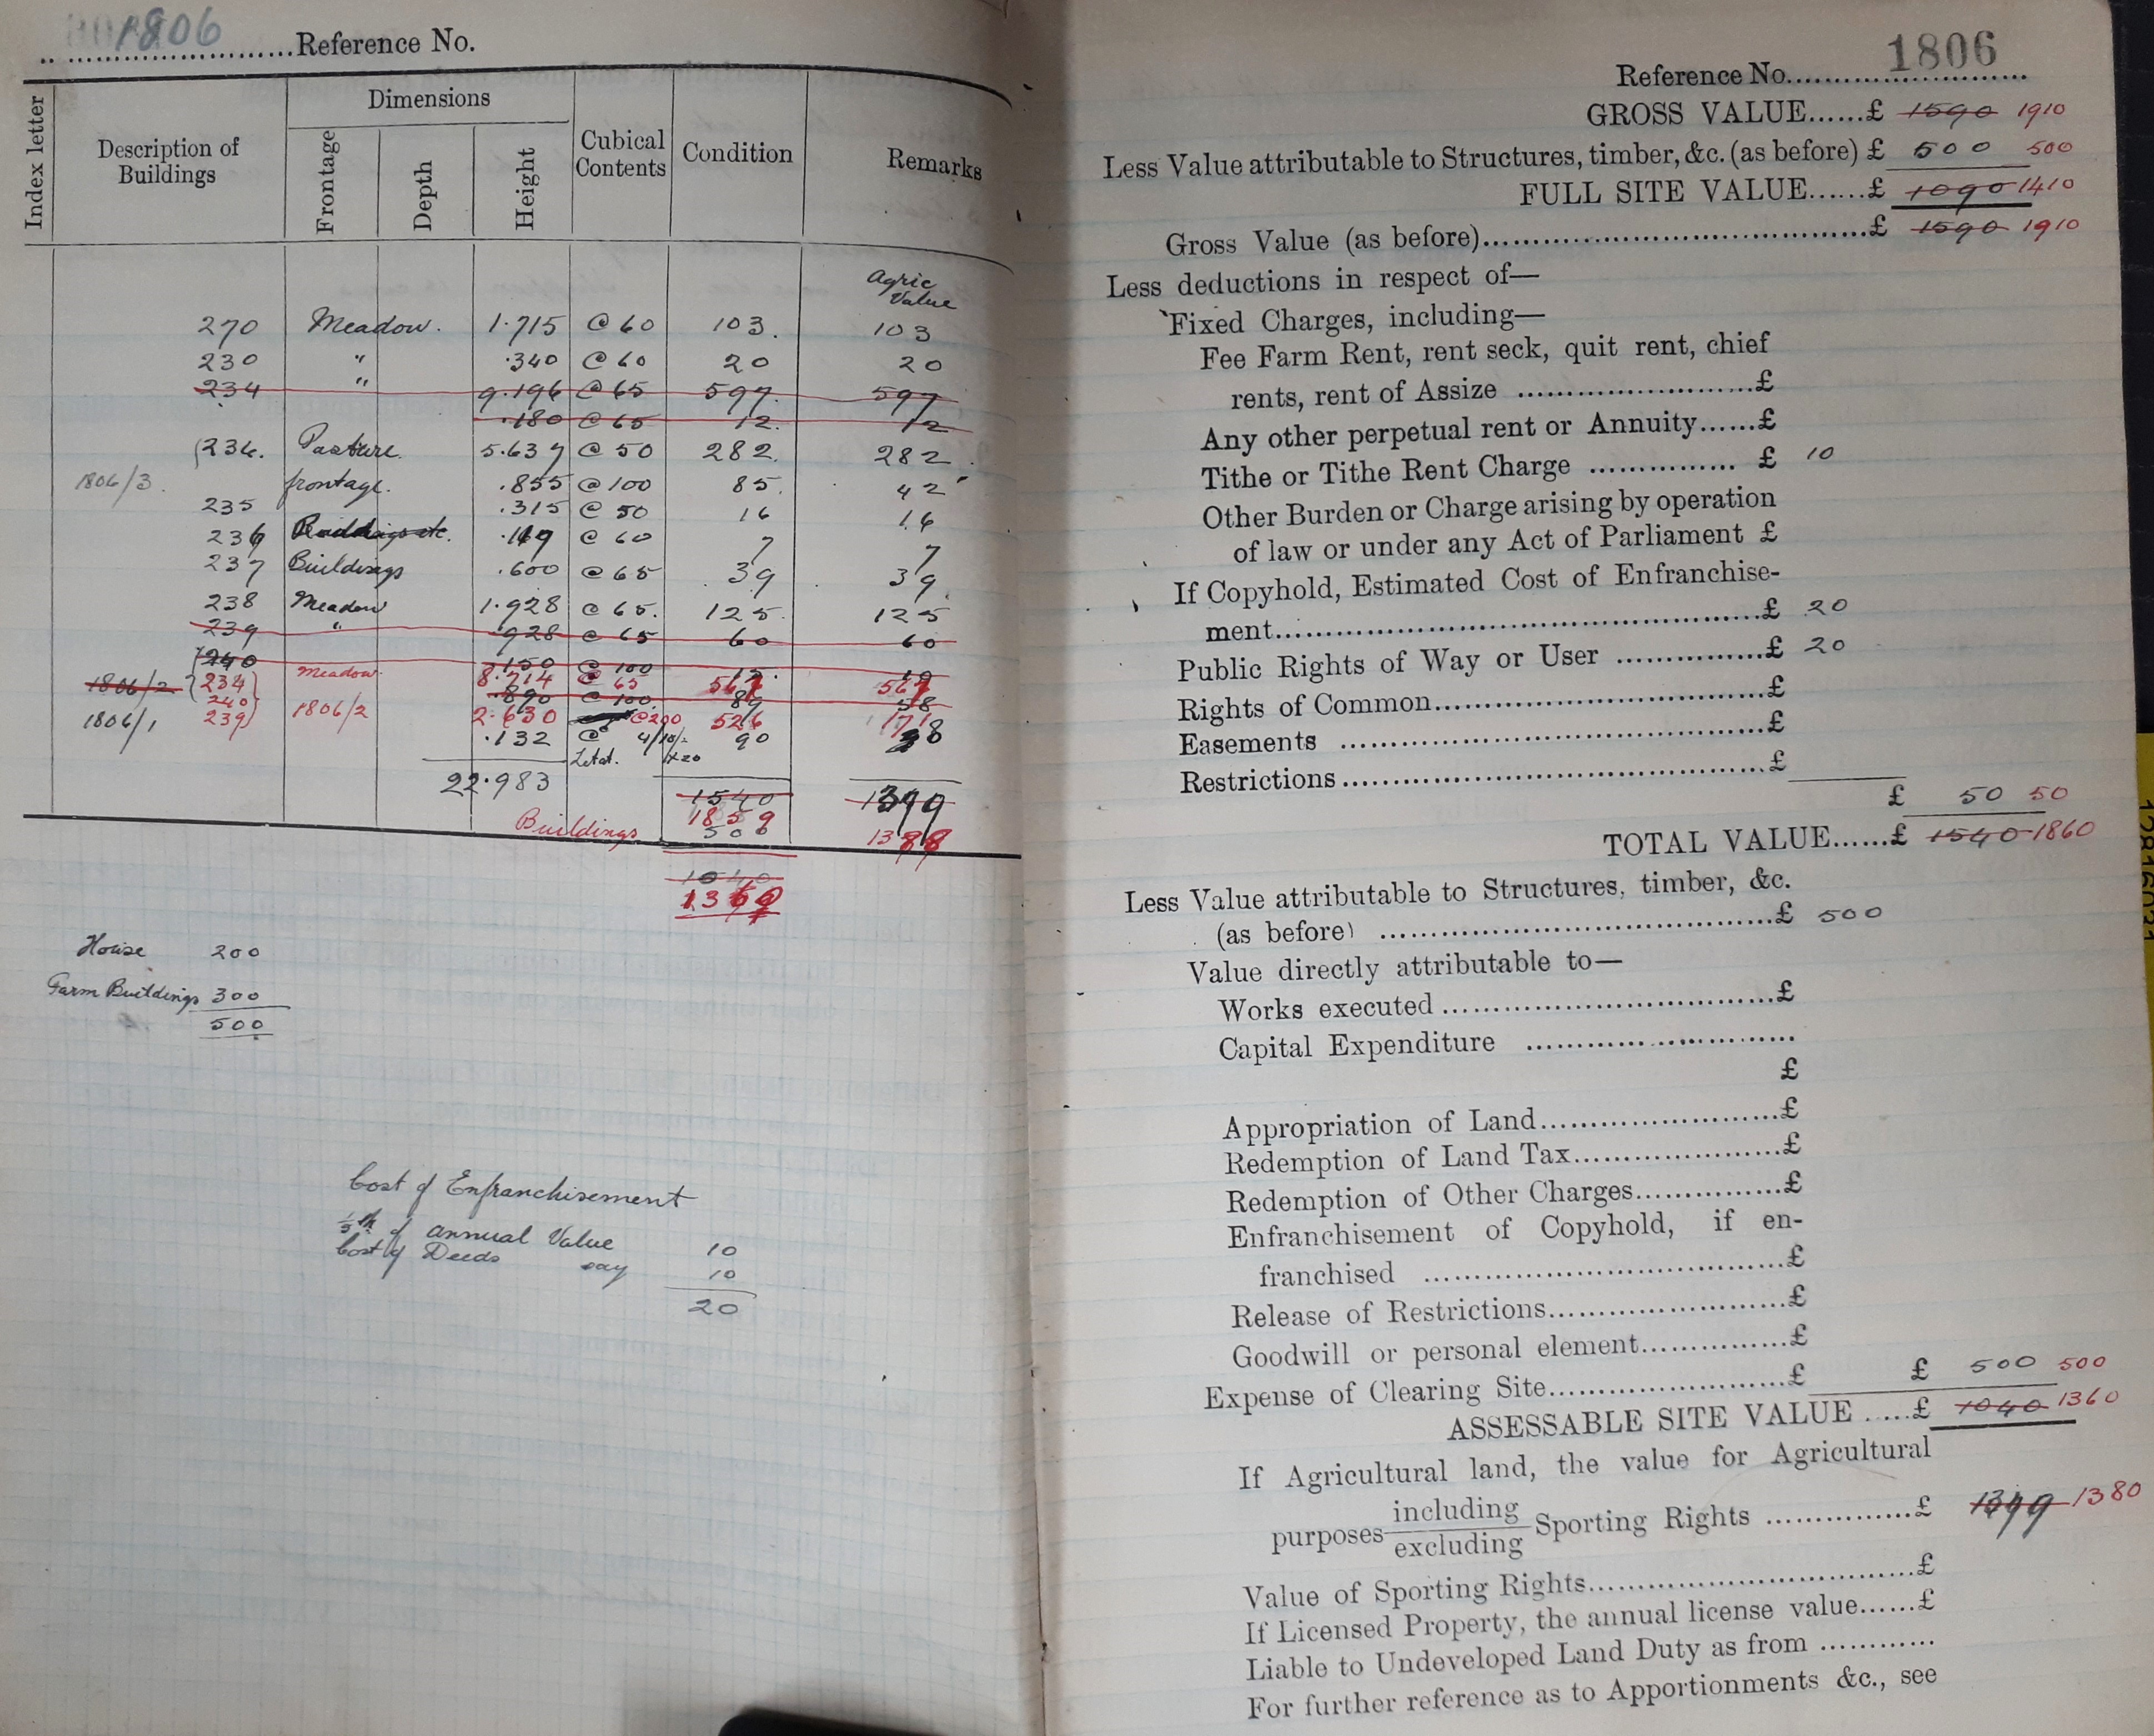 1806 Reference No.
Index letter
Description of Buildings
Dimensions
Frontage
Depth
Height
Cubical Contents
Condition
Remarks
Agric Value
270 Meadow. 1.715 @ 60 103. 103
230 " .340 @ 60 20 20
234 " 9.196 @ 65 597. 597
.180 @ 65 12. 12
236. Pasture. 5.637 @ 50 282. 282.
1806/3. frontage. .855 @ 100 85. 42
235 .315 @ 50 16 16
236 Buildings etc. @ 60 7 7
237 Buildings .600 @ 65 39 39.
238 Meadow 1.928 @ 65. 125 125
239 " .928 @ 65 60 60
240 .150 @ 100
1806/2 234 Meadow 8.714 @ 65
240 .890 @ 100. 89 58
1806/1 239 1806/2 2.630 @200 526 171
.132 @ 4/10/- 90
x20
22.983
1540 1399
1859
Buildings 500 1388
1040
1360
House 200
Farm Buildings 300
500
Cost of Enfranchisement
1/5th of annual Value 10
Cost of Deeds say 10
20
1806
Reference No.
GROSS VALUE......£ 1590 1910
Less Value attributable to Structures, timber, &c. (as before) £ 500 500
FULL SITE VALUE......£ 1090 1410
Gross Value (as before)......£ 1590 1910
Less deductions in respect of—
Fixed Charges, including—
Fee Farm Rent, rent seck, quit rent, chief
rents, rent of Assize ......£
Any other perpetual rent or Annuity......£
Tithe or Tithe Rent Charge ...... £ 10
Other Burden or Charge arising by operation
of law or under any Act of Parliament £
If Copyhold, Estimated Cost of Enfranchise-
ment......£ 20
Public Rights of Way or User ......£ 20
Rights of Common......£
Easements ......£
Restrictions......£
£ 50 50
TOTAL VALUE......£ 1540 1860
Less Value attributable to Structures, timber, &c.
(as before) ......£ 500
Value directly attributable to—
Works executed......£
Capital Expenditure ......
£
Appropriation of Land......£
Redemption of Land Tax......£
Redemption of Other Charges......£
Enfranchisement of Copyhold, if en-
franchised ......£
Release of Restrictions......£
Goodwill or personal element......£
Expense of Clearing Site......£ £ 500 500
ASSESSABLE SITE VALUE .....£ 1040 1360
If Agricultural land, the value for Agricultural
purposes including excluding Sporting Rights ......£ 1399 1380
Value of Sporting Rights......£
If Licensed Property, the annual license value......£
Liable to Undeveloped Land Duty as from ......
For further reference as to Apportionments &c., see